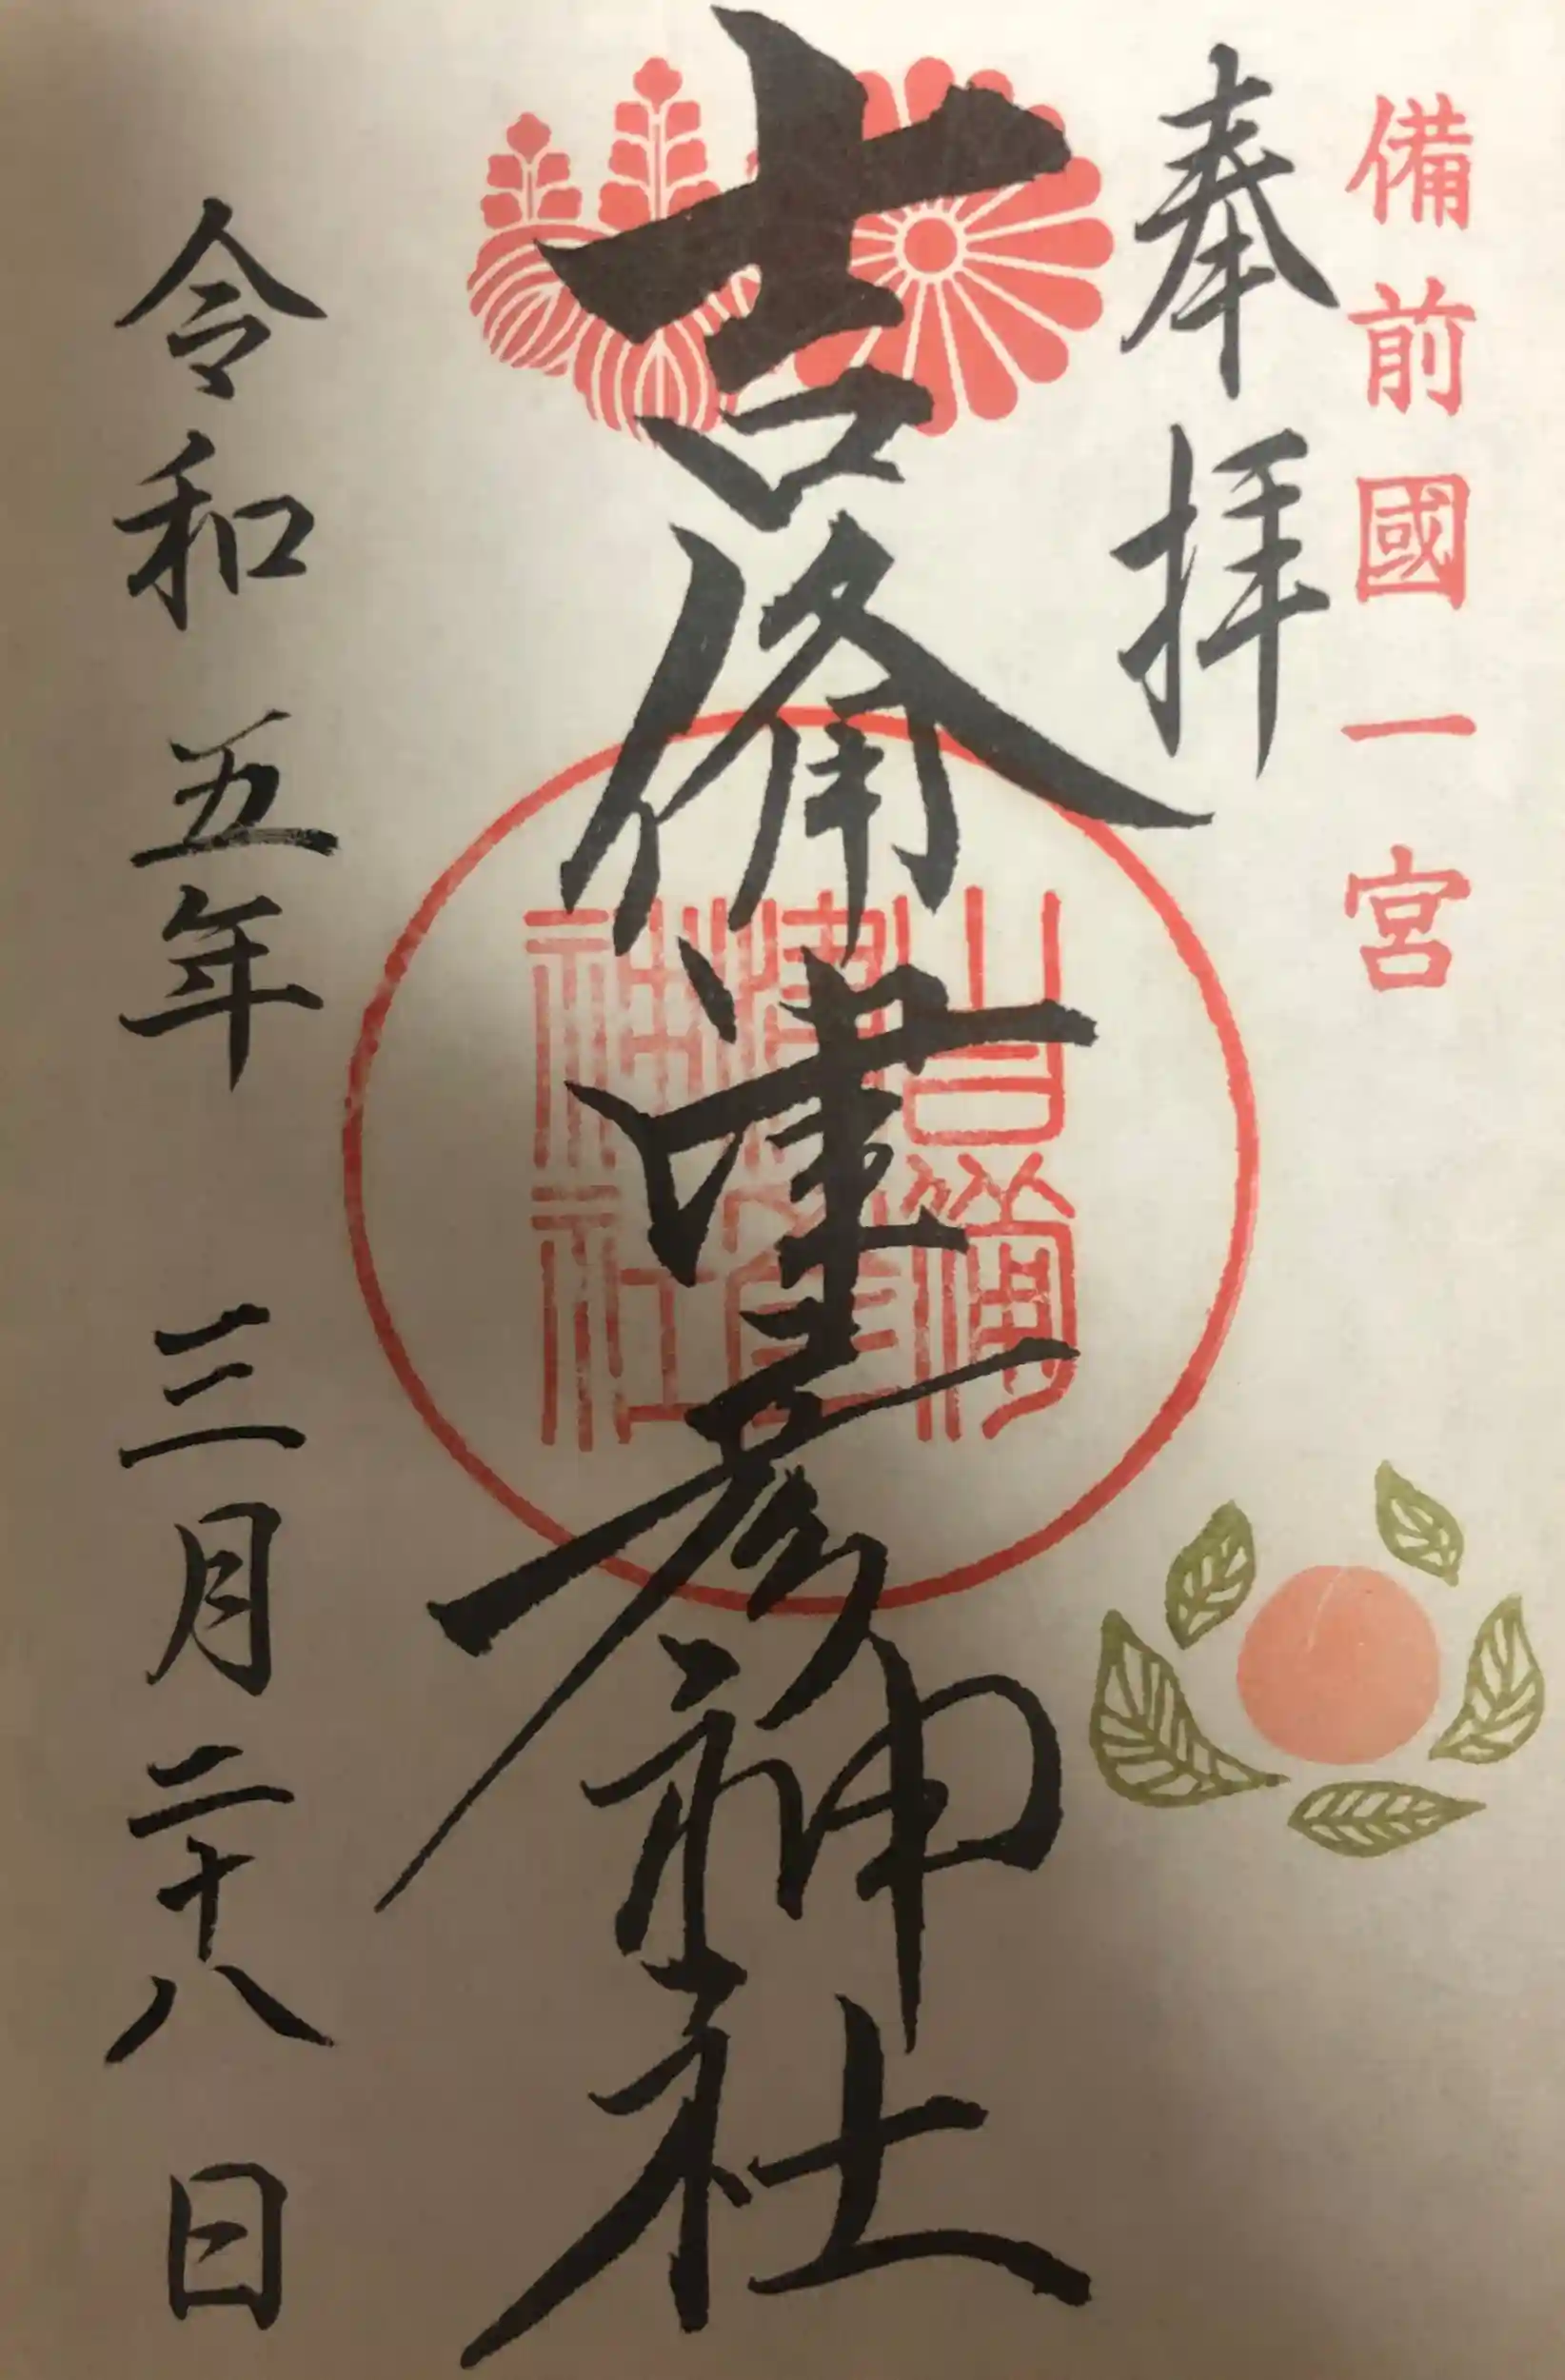 備前國一宮
奉拝
吉備津彦神社
吉備
津彦
神社
令和五年三月二十八日